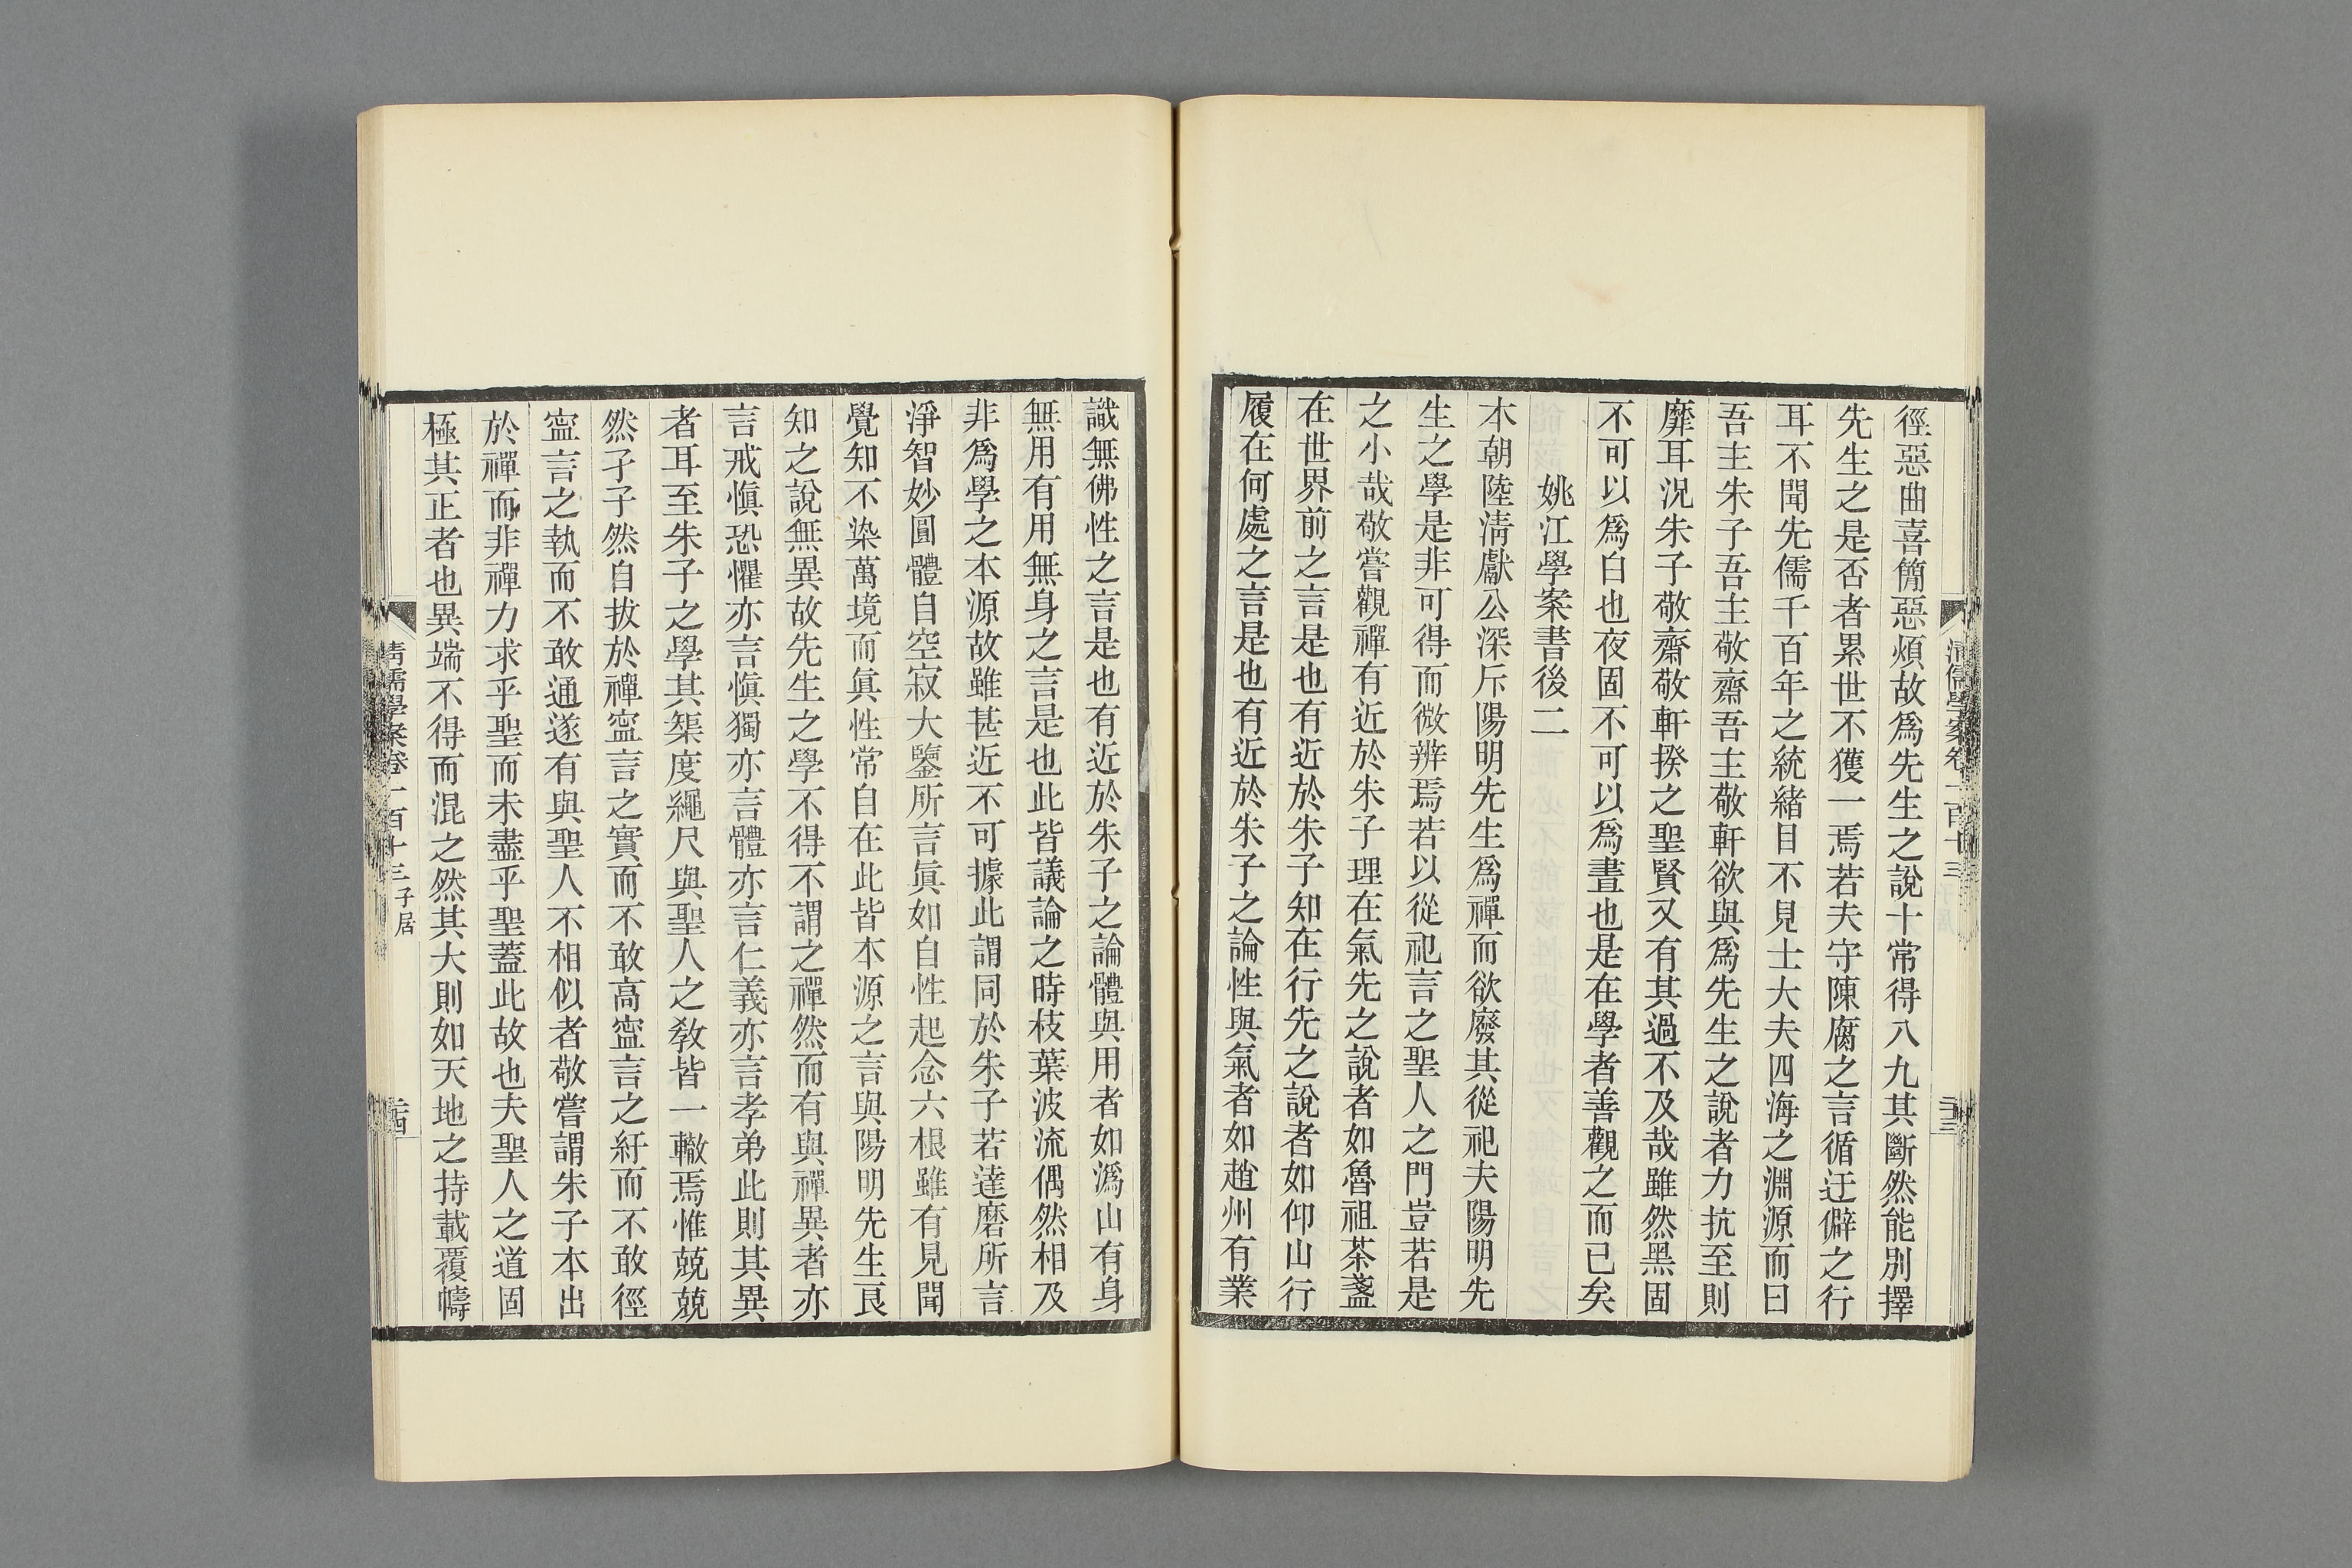 徑惡曲喜簡惡煩故爲先生之說十常得八九其斷然能別擇
先生之是否者累世不獲一焉若夫守陳腐之言循迂僻之行
耳不聞先儒千百年之統緒目不見士大夫四海之淵源而曰
吾主朱子吾主敬齋吾主敬軒欲與爲先生之說者力抗至則
靡耳況朱子敬齋敬軒揆之聖賢又有其過不及哉雖然黑固
不可以爲白也夜固不可以爲晝也是在學者善觀之而已矣
姚江學案書後二
本朝陸淸獻公深斥陽明先生爲禪而欲廢其從祀夫陽明先
生之學是非可得而微辨焉若以從祀言之聖人之門豈若是
之小哉敬嘗觀禪有近於朱子理在氣先之說者如魯祖茶盞
在世界前之言是也有近於朱子知在行先之說者如仰山行
履在何處之言是也有近於朱子之論性與氣者如趙州有業
識無佛性之言是也有近於朱子之論體與用者如潙山有身
無用有用無身之言是也此皆議論之時枝葉波流偶然相及
非爲學之本源故雖甚近不可據此謂同於朱子若達磨所言
淨智妙圓體自空寂大鑒所言眞如自性起念六根雖有見聞
覺知不染萬境而眞性常自在此皆本源之言與陽明先生良
知之說無異故先生之學不得不謂之禪然而有與禪異者亦
言戒愼恐懼亦言愼獨亦言體亦言仁義亦言孝弟此則其異
者耳至朱子之學其榘度繩尺與聖人之敎皆一轍焉惟兢兢
然孑孑然自拔於禪寍言之實而不敢高寍言之紆而不敢徑
寍言之執而不敢通遂有與聖人不相似者敬嘗謂朱子本出
於禪而非禪力求乎聖而未盡乎聖蓋此故也夫聖人之道固
極其正者也異端不得而混之然其大則如天地之持載覆幬
清儒學案卷一百十三 子居
二十四